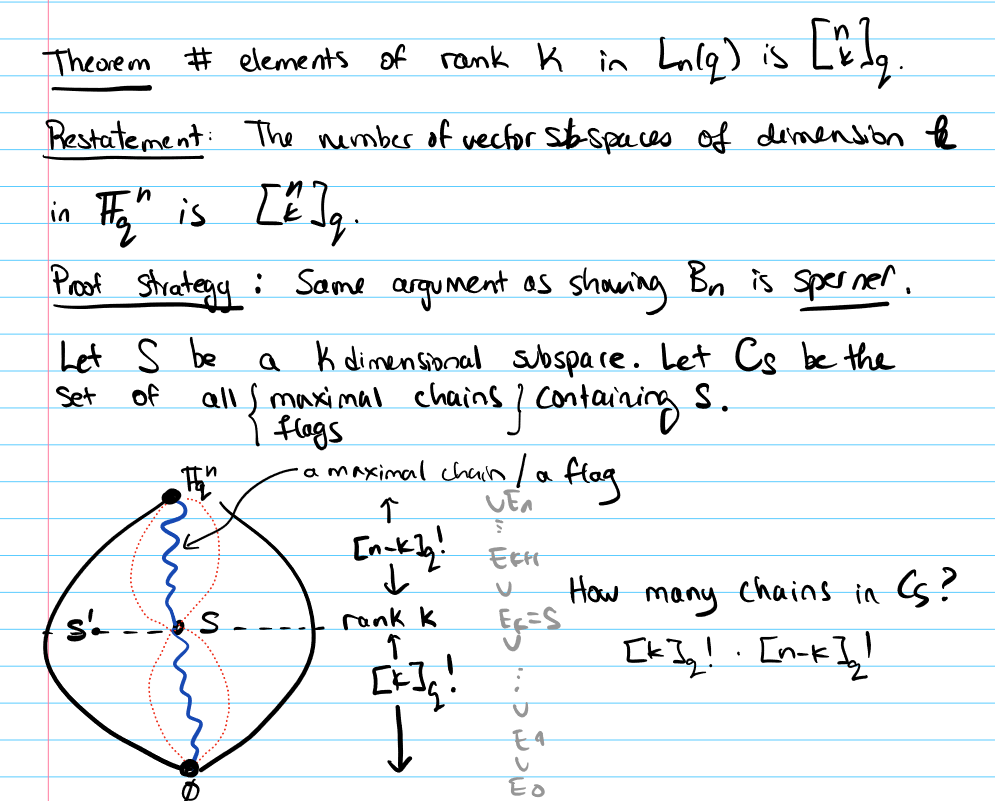 Theorem # elements of rank k in Ln(q) is [n k]q.
Restatement: The number of vector subspaces of dimension k
in 𝔽q^n is [n k]q.
Proof strategy: Same argument as showing Bn is sperner.
Let S be a k dimensional subspace. Let Cs be the
set of all { maximal chains } containing S.
flags
𝔽q^n
a maximal chain / a flag
↑
∪En
⋮
[n-k]q!
Ek+1
↓
∪
How many chains in Cs?
S'
S
rank k
Ek=S
∪
↑
[k]q! · [n-k]q!
[k]q!
⋮
∪
↓
E1
∪
∅
E0